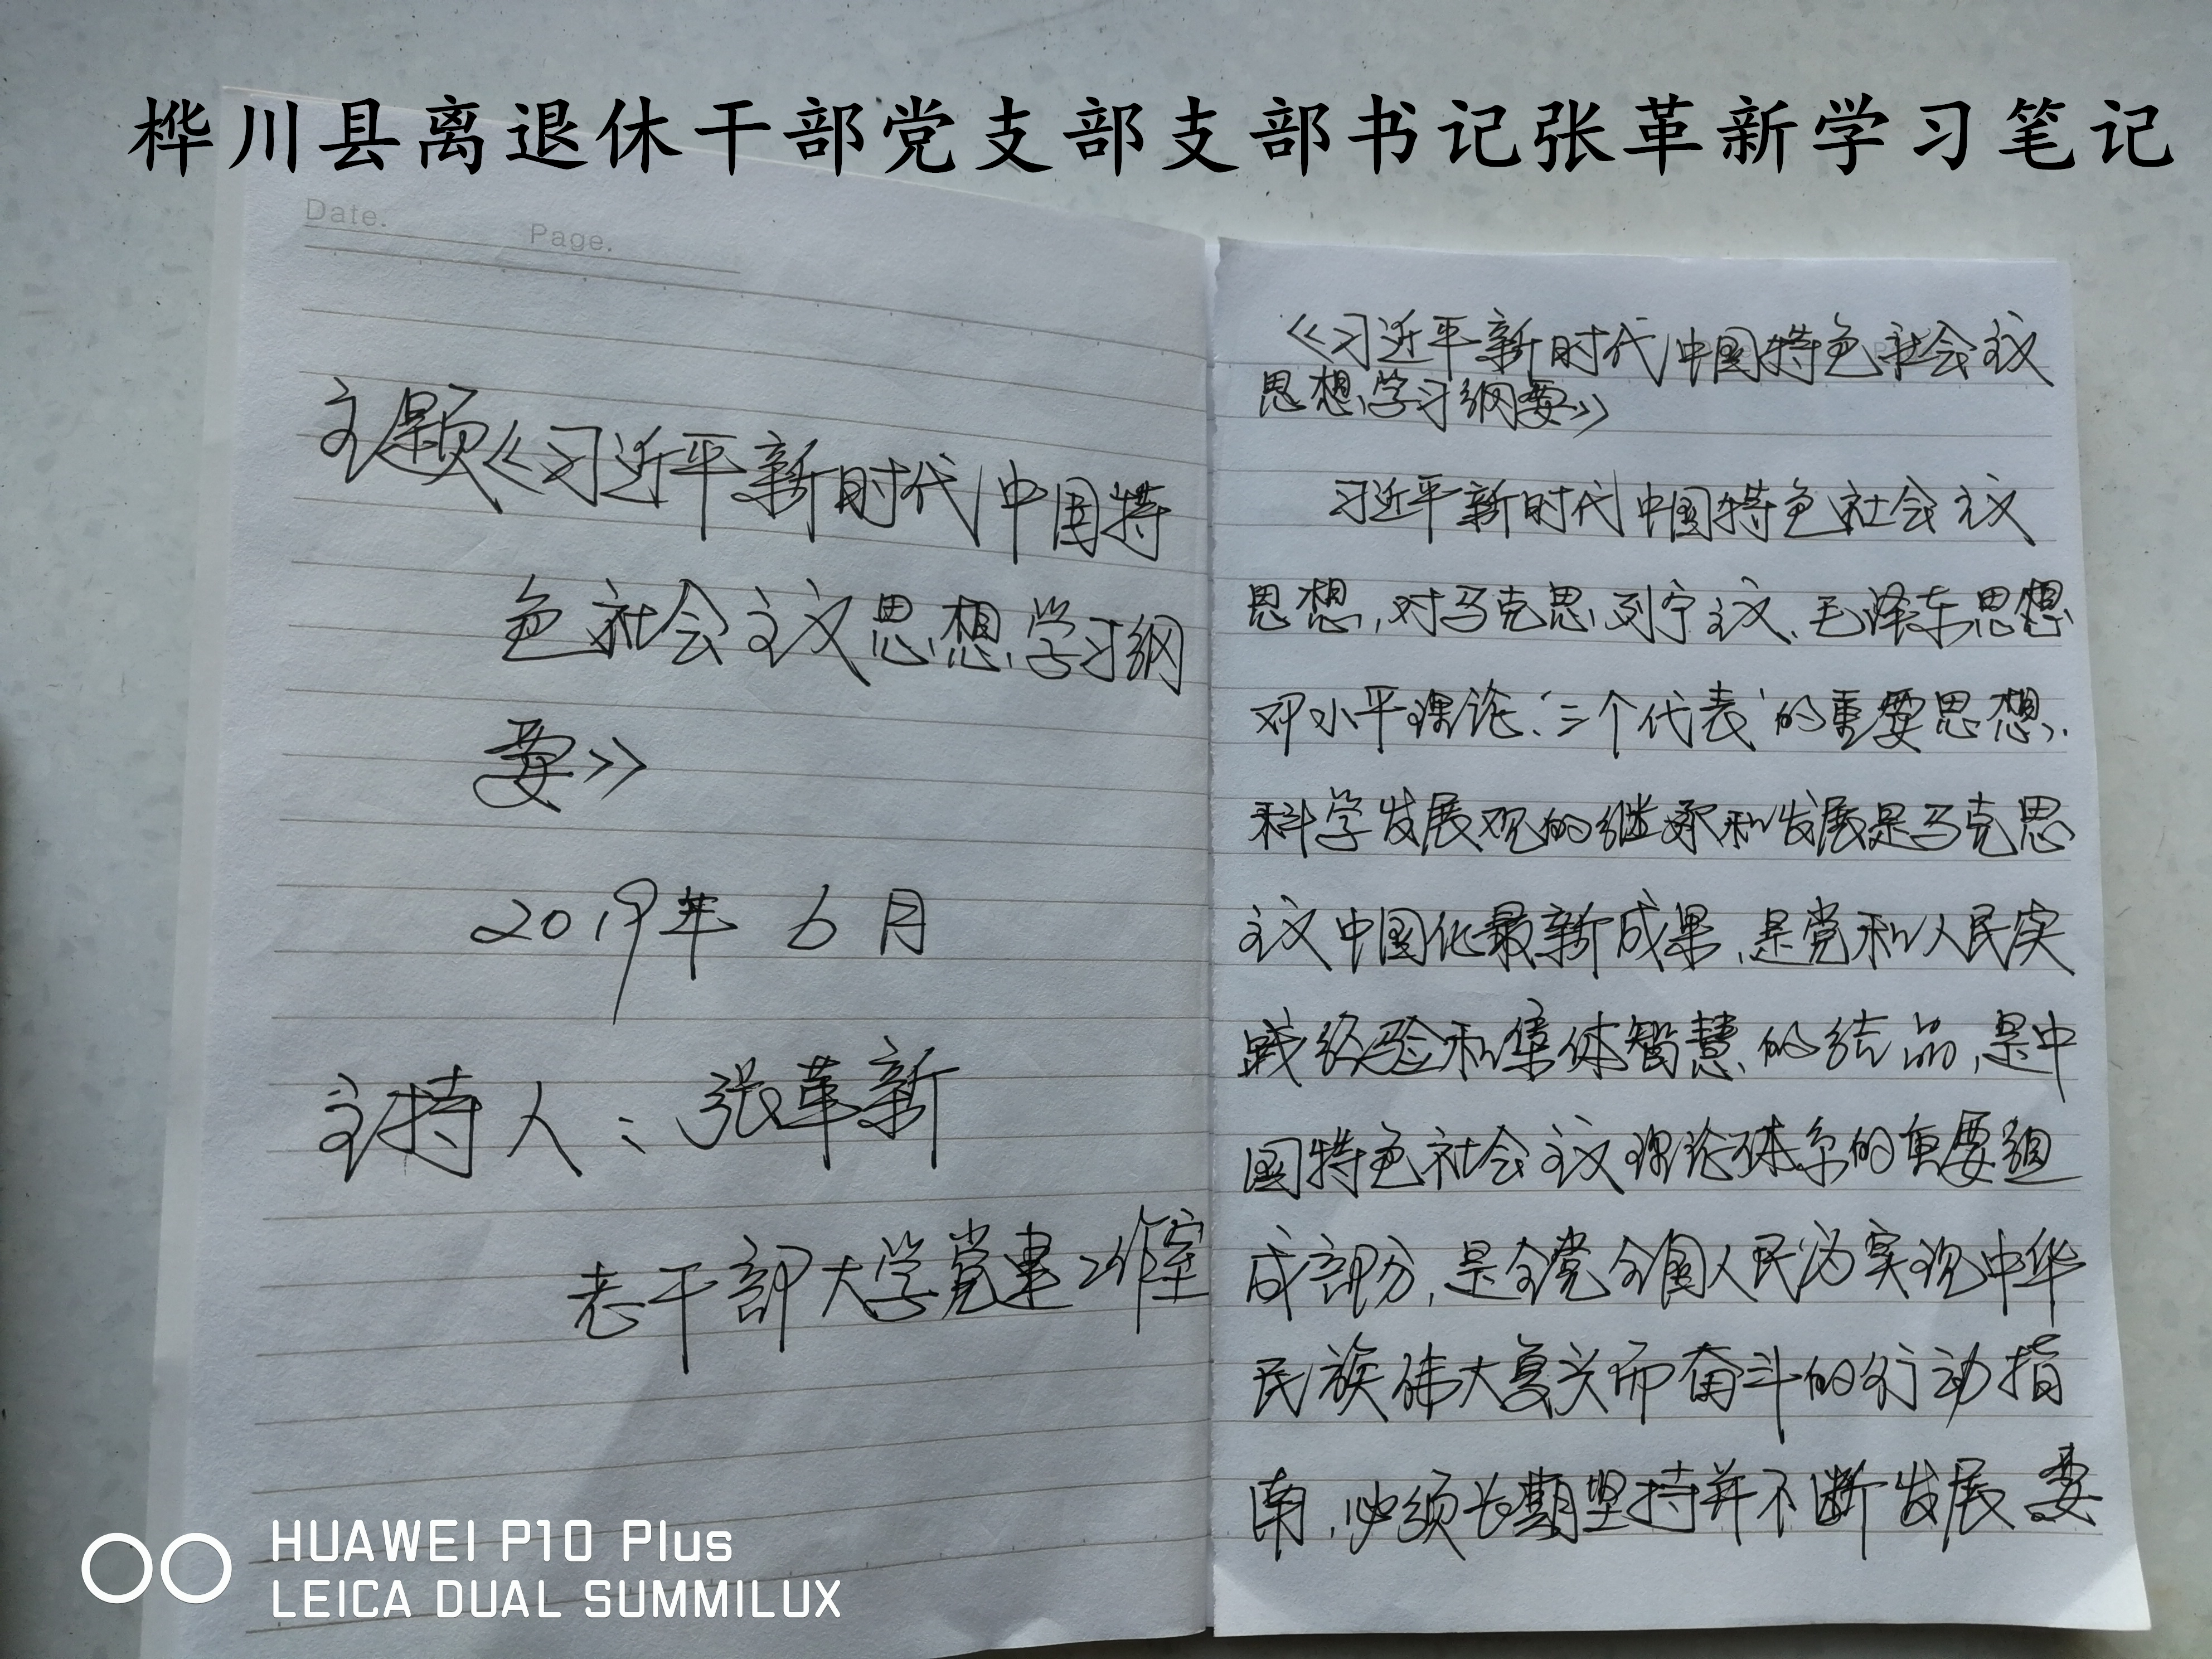 桦川县离退休干部党支部支部书记张革新学习笔记
Date.
Page.
主题《习近平新时代中国特
色社会主义思想学习纲
要》
2019年 6月
主持人：张革新
老干部大学党建工作室
《习近平新时代中国特色社会主义
思想学习纲要》
习近平新时代中国特色社会主义
思想,对马克思列宁主义、毛泽东思想
邓小平理论、“三个代表”的重要思想、
科学发展观的继承和发展是马克思
主义中国化最新成果,是党和人民实
践经验和集体智慧的结晶,是中
国特色社会主义理论体系的重要组
成部分,是全党全国人民为实现中华
民族伟大复兴而奋斗的行动指
南,必须长期坚持并不断发展要
HUAWEI P10 Plus
LEICA DUAL SUMMILUX